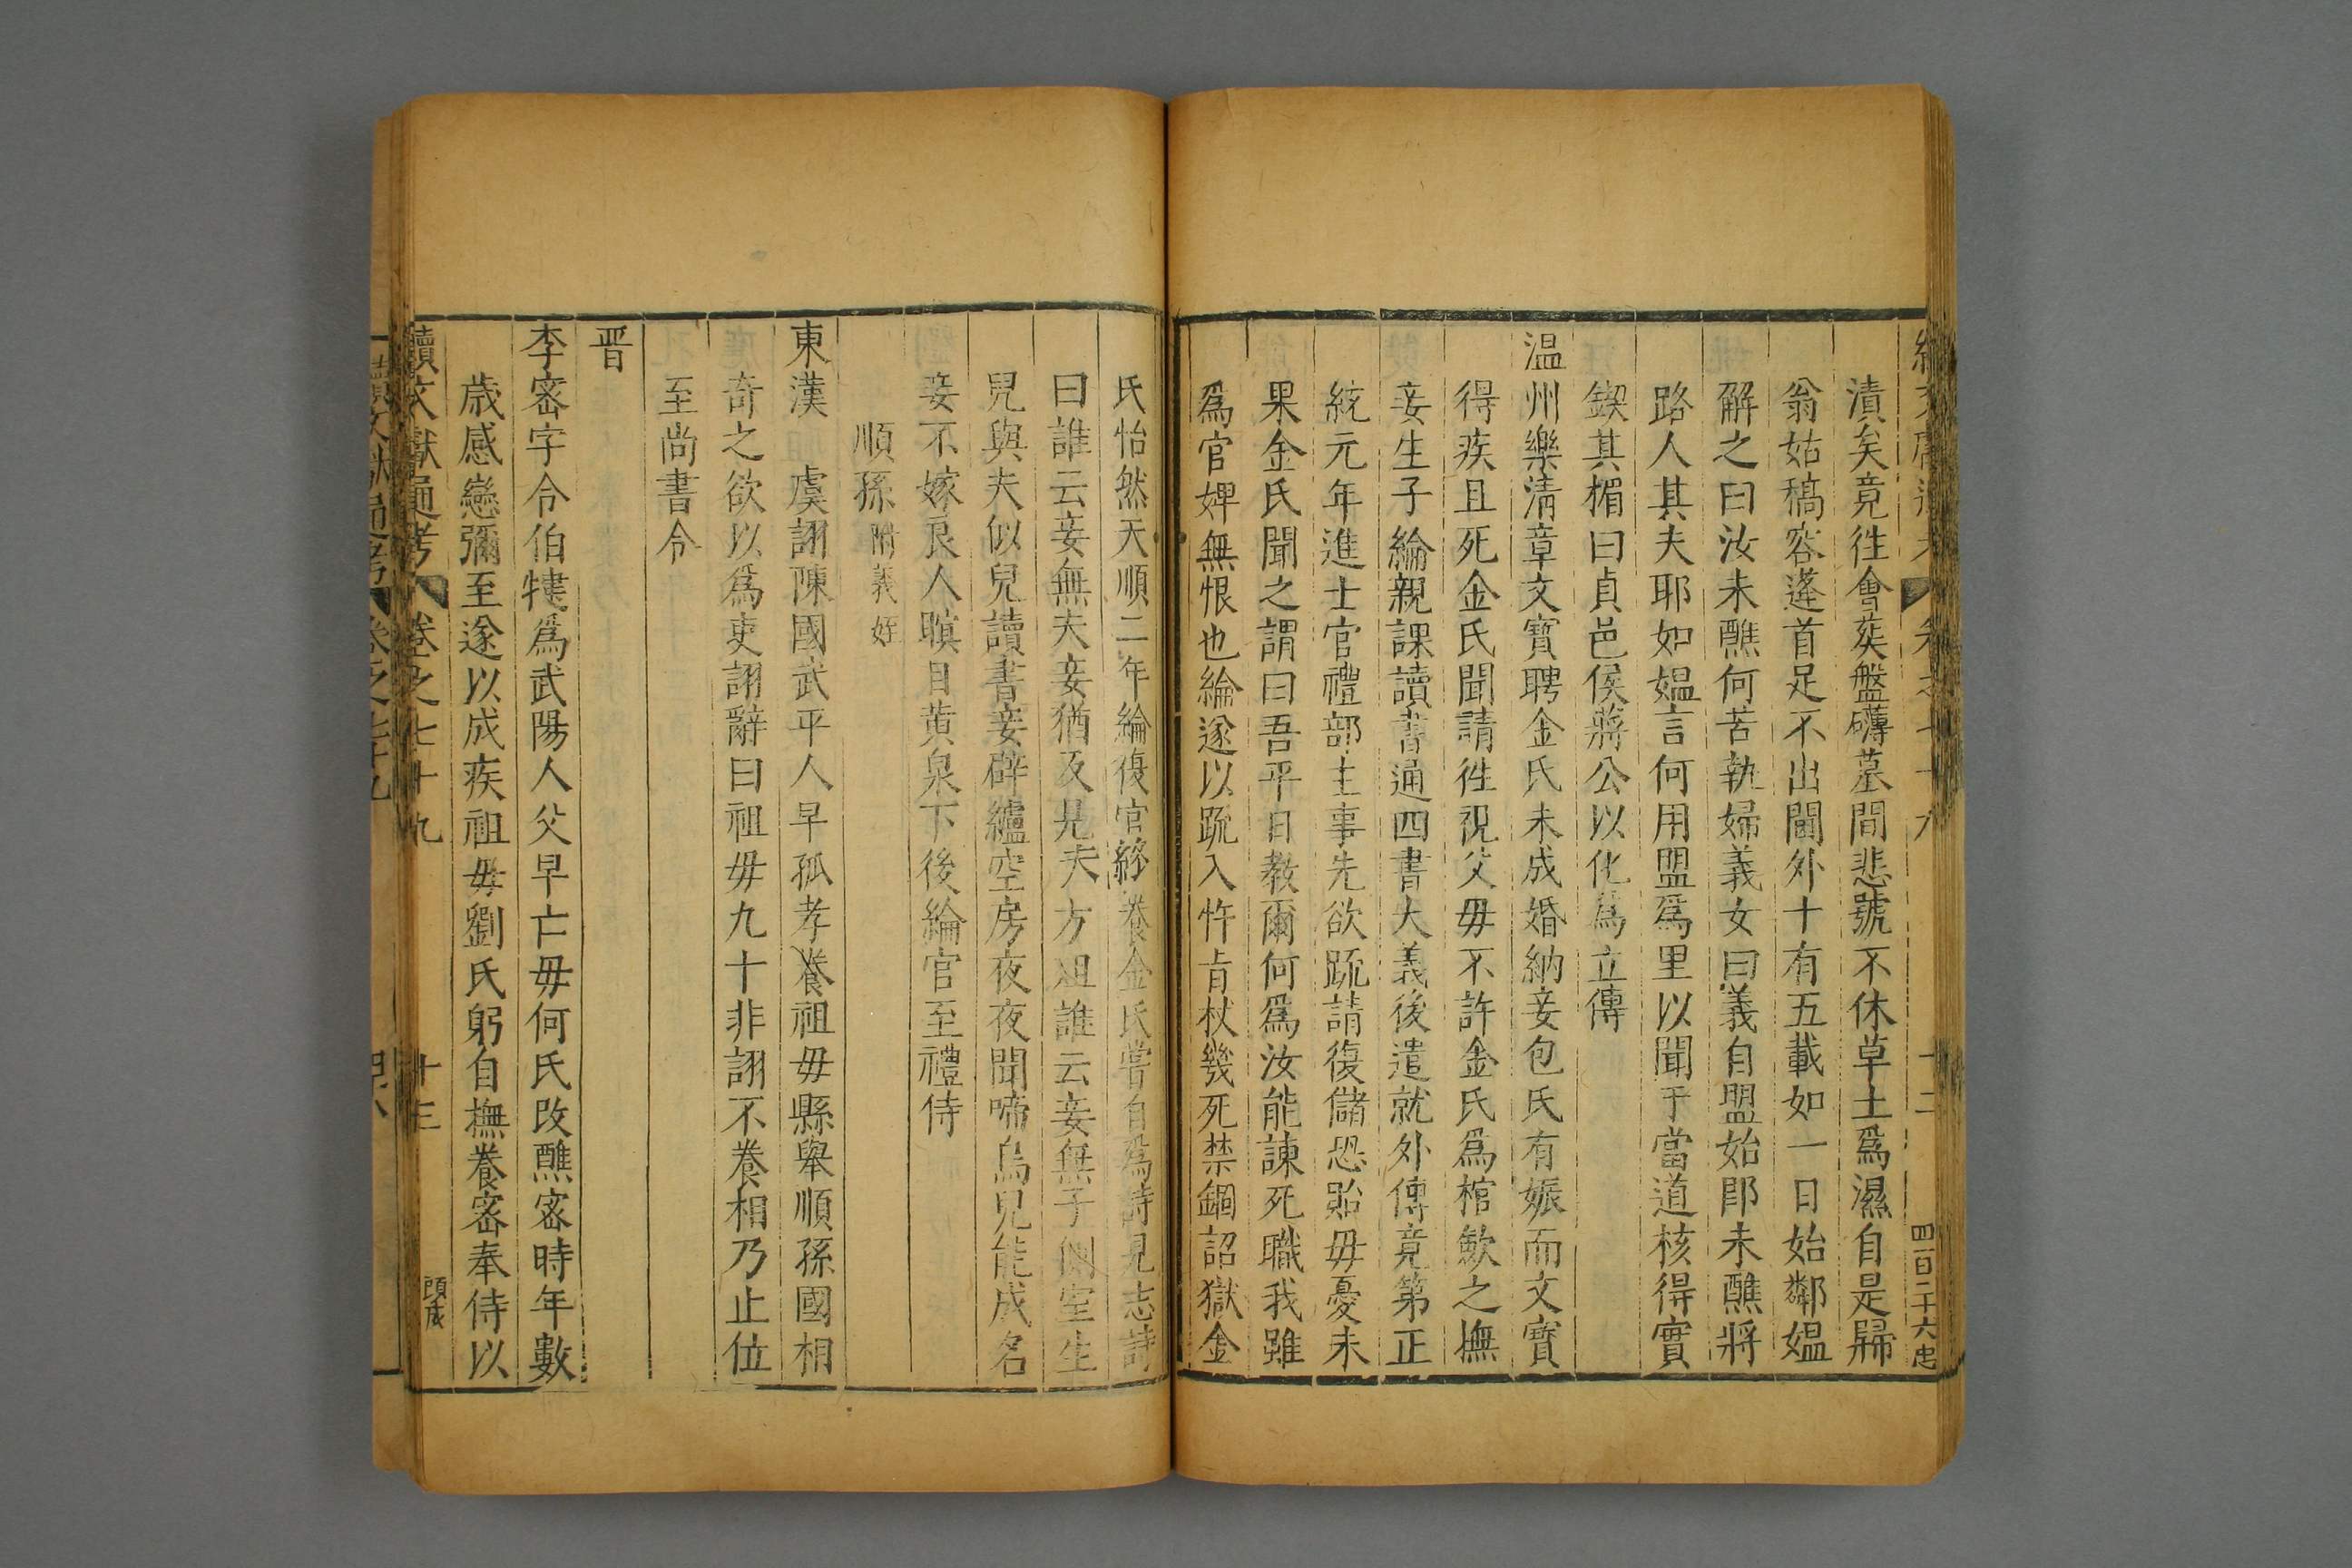 漬矣竟徃會葬盤礴墓間悲號不休草土爲濕自是歸
翁姑稿容逢首足不出閫外十有五載如一日始鄰媼
解之曰汝未醮何苦執婦義女曰義自盟始即未醮將
路人其夫耶如媼言何用盟爲里以聞于當道核得實
鍥其楣曰貞邑侯蔣公以化爲立傳
温州樂清章文寳聘金氏未成婚納妾包氏有娠而文寳
得疾且死金氏聞請徃視父毋不許金氏爲棺歛之撫
妾生子綸親課讀書通四書大義後遣就外傅竟第正
統元年進士官禮部主事先欲疏請復儲恐貽毋憂未
果金氏聞之謂曰吾平日教爾何爲汝能諫死職我雖
爲官婢無恨也綸遂以疏入忤旨杖幾死禁錮詔獄金
氏怡然天順二年綸復官終養金氏嘗自爲詩見志詩
曰誰云妾無夫妾猶及見夫方殂誰云妾無子側室生
兒與夫似兒讀書妾辟纑空房夜夜聞啼烏兒能成名
妾不嫁良人瞑目黄泉下後綸官至禮侍
順孫附義姪
東漢 虞詡陳國武平人早孤孝養祖毋縣舉順孫國相
奇之欲以爲吏詡辭曰祖毋九十非詡不養相乃止位
至尚書令
晋
李密字令伯犍爲武陽人父早亡毋何氏改醮密時年數
歲感戀彌至遂以成疾祖毋劉氏躬自撫養密奉侍以
續文獻通考 卷之七十九 十三